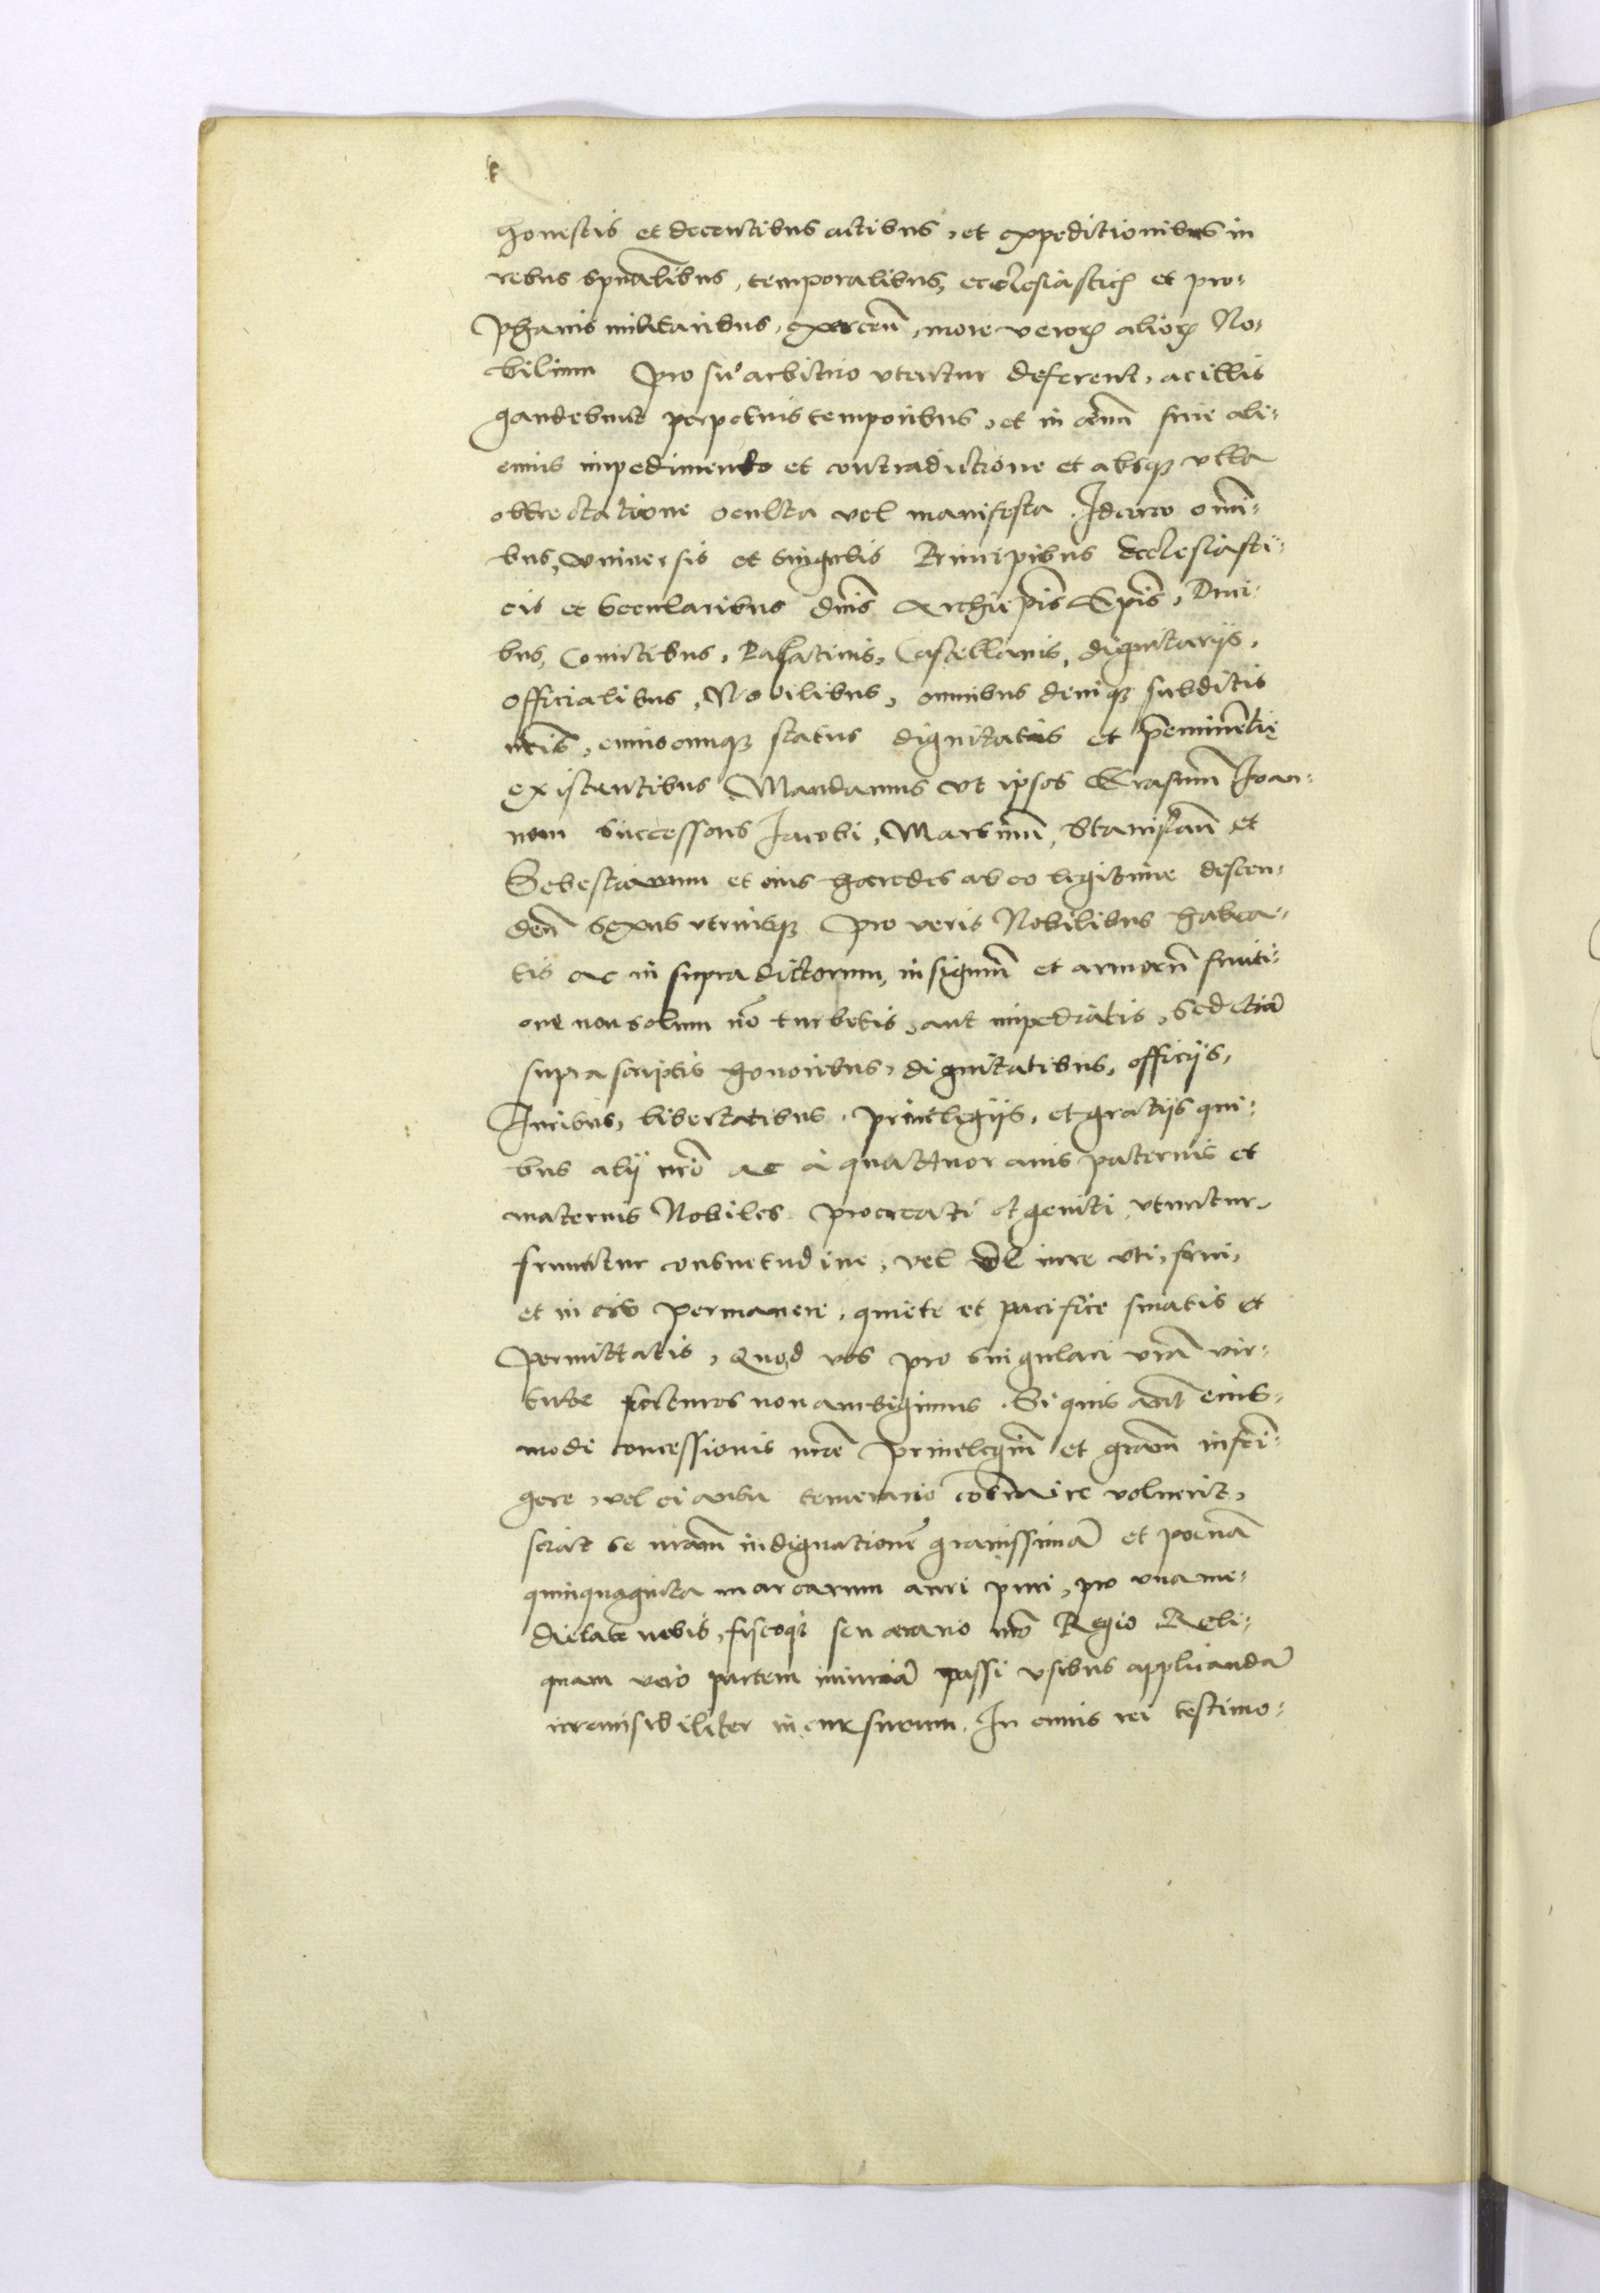 honestis et decentibus actibus, et expeditionibus in
rebus spũalibus, temporalibus, ecclesiasticꝭ et pro-
phanis militaribus, exercen̄, more veroꝝ alioꝝ No-
bilium pro suo arbitrio vtentur deferent, ac illis
gaudebunt perpetuis temporibus, et in aeuū sine ali-
cuius impedimento et contradictione et absqꝫ vlla
obtrectatione oculta vel manifesta. Idcirco omī-
bus, vniuersis et singulis Principibus Ecclesiasti-
cis et Secularibus dn̄is Archiepis̄ Epis̄, Duci-
bus, Comitibus, Palatinis, Castellanis, dignitarijs,
Officialibus, Nobilibus, omnibus deniqꝫ subditis
nr̄is, cuiuscunqꝫ status dignitatis et p̄eminētię
existentibus Mandamus vt ipsos Erasmum Ioan-
nem successores Iacobi, Martinū, Stanislaū et
Sebestianum et eius haeredes ab eo legitime descen-
den̄ sexus vtriusqꝫ pro veris Nobilibus habea-
tis ac in supra dictorum, insigniū et armorū fruiti-
one non solum nō turbetis, aut impediatis, sed etiā
supra scriptis honoribus, dignitatibus, officijs,
Iuribus, libertatibus, priuilegijs, et gratijs qui-
bus alij vero ac à quattuor auis paternis et
maternis Nobiles procreati et geniti vtuntur,
fruuntur consuetudine, vel iure vti, frui,
et in eis permanere, quiete et pacifice sinatis et
permittatis, Quod vos pro singulari vr̄a vir-
tute facturos non ambigimus. Si quis aut̄ eius-
modi concessionis nr̄e priuilegiū et gratiā infrī-
gere, vel ei ausu temerario cōtrauire voluerit,
sciat se nr̄am indignationē grauissimā et poenā
quinquaginta marcarum auri puri, pro vna me-
dietate nobis, fiscoqꝫ seu aerario nr̄o Regio Reli-
quam vero partem iniuriā passi vsibus applicandā
irremisibiliter incursurum. In cuius rei testimo-